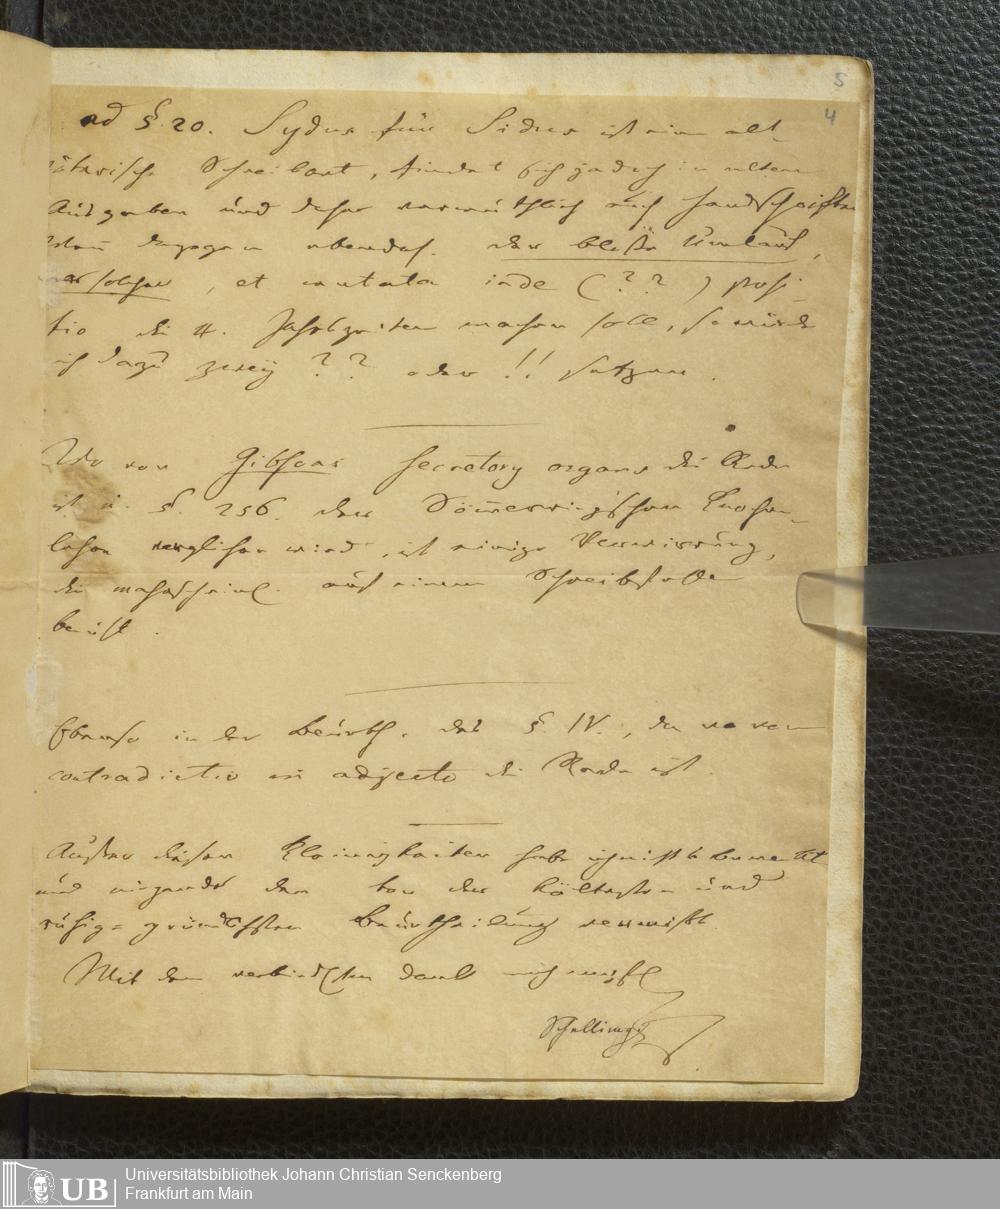 5
4
ad §. 20. Sydus für Sidus ist eine alt-
väterische Schreibart, findet sich jedoch in alten
Ausgaben und daher vermuthlich auch Handschriften
dagegen ebendas. der bloße Umlauf,
, et mutata inde (??) posi-
tio die 4. Jahrszeiten machen soll, so würde
ich dazu zwey ?? oder !! setzen.
Wo von Gibsons secretory organs die Rede
ist u. §. 256. der Sömmerringschen Knochen-
lehre verglichen wird, ist einige Verwirrung,
die wahrscheinl. auf einem Schreibfehler
beruht.
Ebenso in der Beurth. des §. IV., wo von
contradictio in adjecto die Rede ist.
Außer diesen Kleinigkeiten habe ich nichts bemerkt
und nirgends den Ton der kältesten und
ruhig=gründlichsten Beurtheilung vermißt.
Mit dem verbindlichsten Dank mich empfehl
Schelling
UB
Universitätsbibliothek Johann Christian Senckenberg
Frankfurt am Main